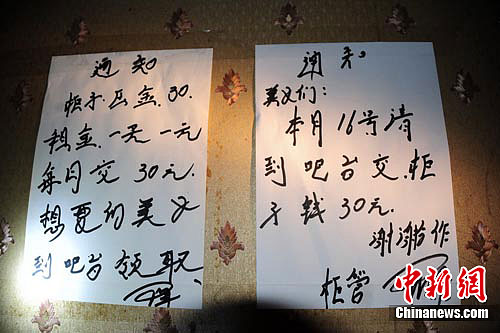 通知
柜子压金.30.
租金.一天一元
每月交30元.
想要的美女
到吧台领取
通知
美女们:
本月16号请
到吧台交.柜
子钱30元.
谢谢合作
柜管
中新网
Chinanews.com